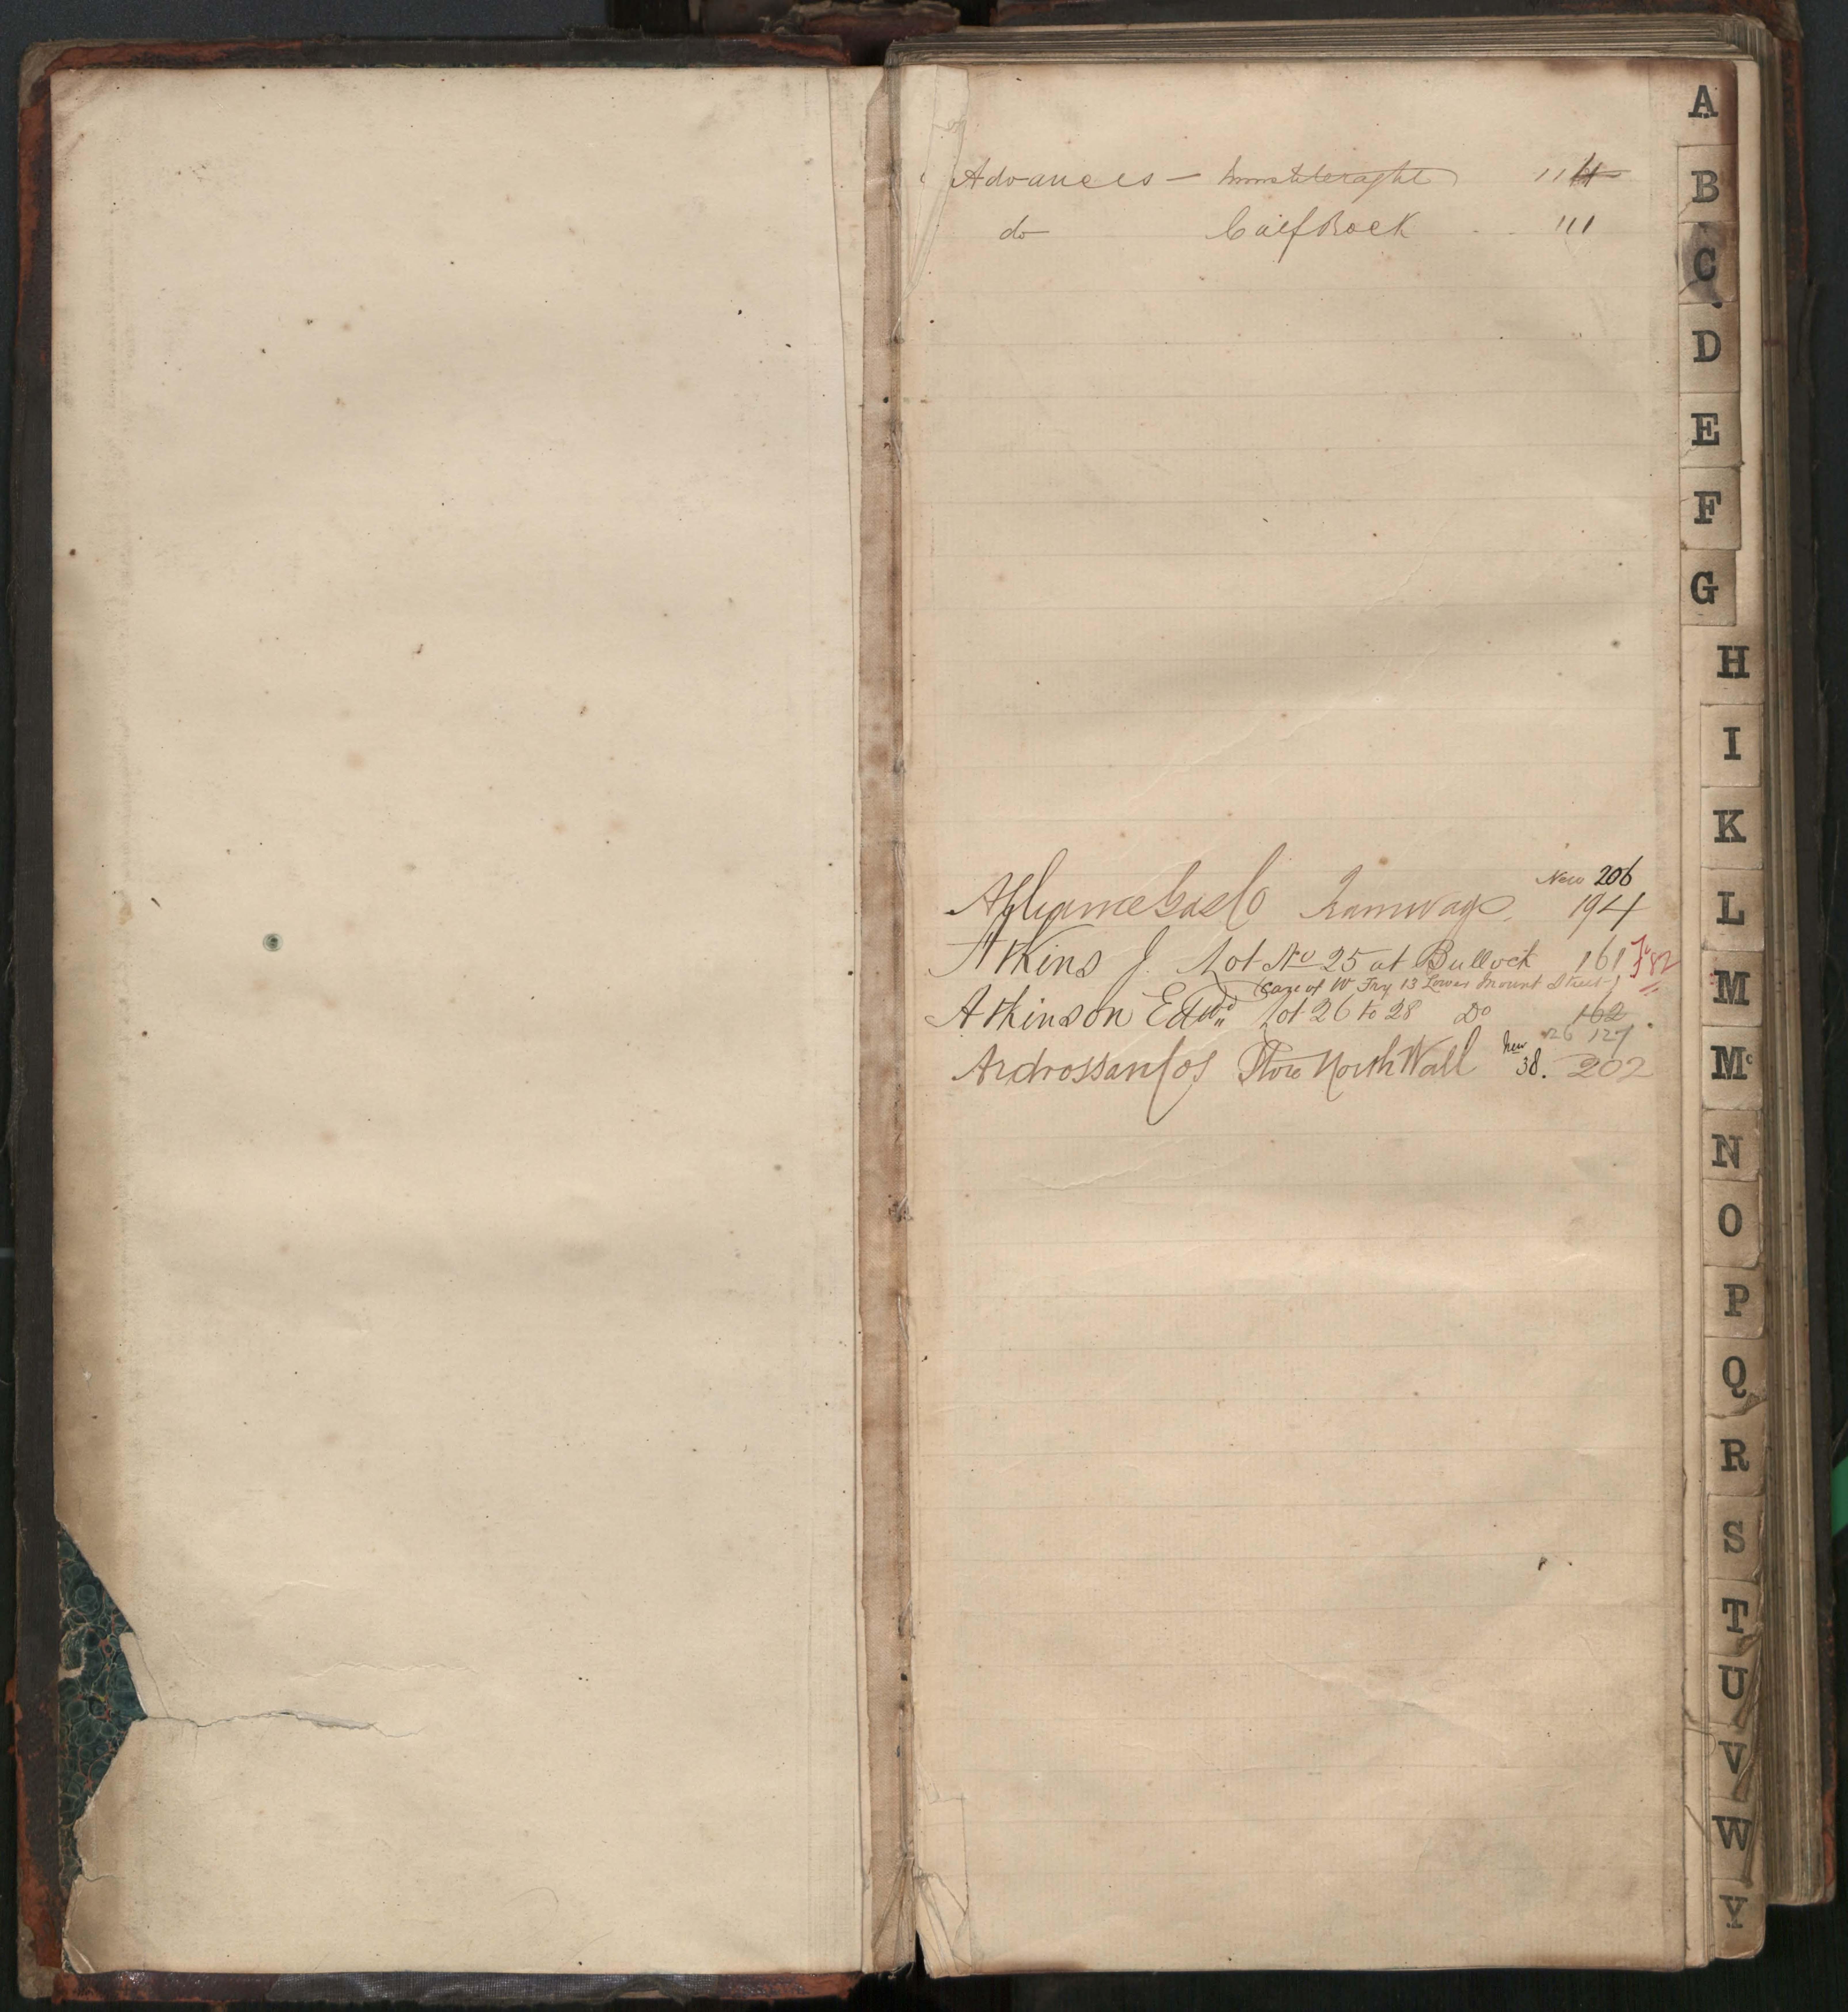 Advances — Innistileraght 114
do Calf Rock . . 111
New 206
Alliance Gas Co Tramways 194
Atkins J. Lot No 25 at Bullock 161
(Care of W Fry 13 Lower Mount Street)
Atkinson Edwd Lot 26 to 28 Do 162
26 127
Ardrossan Cos Store North Wall New 38. 202
A
B
C
D
E
F
G
H
I
K
L
M
Mc
N
O
P
Q
R
S
T
U
V
W
Y